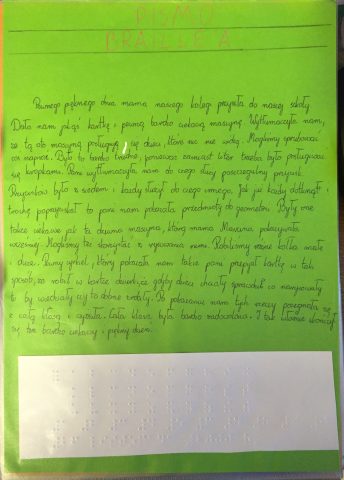 PISMO
BRAILLE'A
Pewnego pięknego dnia mama naszego kolegi przyszła do naszej szkoły.
Dała nam jakąś kartkę i pewną bardzo ciekawą maszynę. Wytłumaczyła nam,
że tą maszyną posługują się dzieci, które nic nie widzą. Mogliśmy spróbować
coś napisać. Było to bardzo trudne, ponieważ zamiast liter trzeba było posługiwać
się kropkami. Pani wytłumaczyła nam do czego służy poszczególny przycisk.
Przycisków było siedem i każdy służył do czego innego. Jak już każdy dotknął i
trochę popisał to pani nam pokazała przedmioty do geometrii. Były one
takie ciekawe jak ta dawna maszyna, którą mama pokazywała
wcześniej. Mogliśmy też skorzystać z rysowania nimi. Robiliśmy różne kółka małe
i duże. Pewny cyrkiel, który pokazała nam także pani przepiął kartkę w taki
sposób, że robił w kartce dziurki, że gdyby dzieci chciały sprawdzić co narysowały
to by wiedziały czy to dobrze zrobiły. Po pokazaniu nam tych rzeczy pożegnała się
z całą klasą i wyszła. Cała klasa była bardzo zadowolona. I tak właśnie skończył
się ten bardzo ciekawy i piękny dzień.